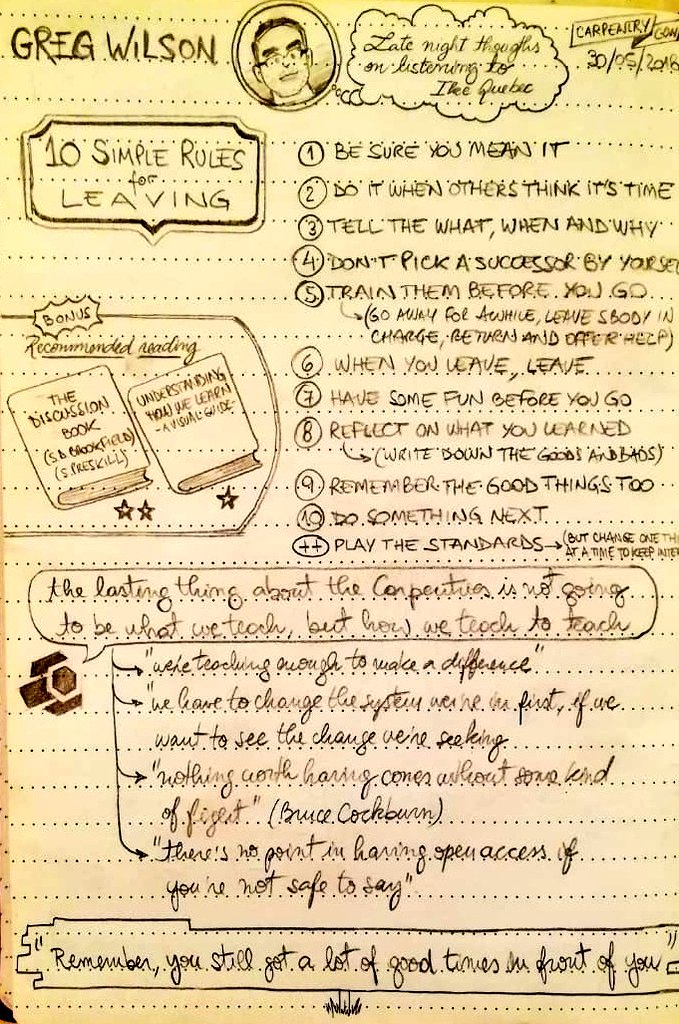 GREG WILSON
Late night thoughts
on listening to
Ike Quebec
CARPENTRY
30/05/2018
10 SIMPLE RULES
for
LEAVING
① BE SURE YOU MEAN IT
② DO IT WHEN OTHERS THINK IT'S TIME
③ TELL THE WHAT, WHEN AND WHY
④ DON'T PICK A SUCCESSOR BY YOURSE
⑤ TRAIN THEM BEFORE YOU GO
(GO AWAY FOR AWHILE, LEAVE SBODY IN
CHARGE, RETURN AND OFFER HELP)
⑥ WHEN YOU LEAVE, LEAVE
⑦ HAVE SOME FUN BEFORE YOU GO
⑧ REFLECT ON WHAT YOU LEARNED
(WRITE DOWN THE GOODS AND BADS)
⑨ REMEMBER THE GOOD THINGS TOO
⑩ DO SOMETHING NEXT
++ PLAY THE STANDARDS → (BUT CHANGE ONE THI
AT A TIME TO KEEP INTER
BONUS
Recommended reading
THE
DISCUSSION
BOOK
(S.D. BROOKFIELD)
(S. PRESKILL)
UNDERSTANDING
HOW WE LEARN
-A VISUAL GUIDE-
the lasting thing about the Carpentries is not going
to be what we teach, but how we teach to teach
"we're teaching enough to make a difference"
"we have to change the system we're in first, if we
want to see the change we're seeking
"nothing worth having comes without some kind
of figest" (Bruce Cockburn)
"there's no point in having open access if
you're not safe to say"
"Remember, you still got a lot of good times in front of you"